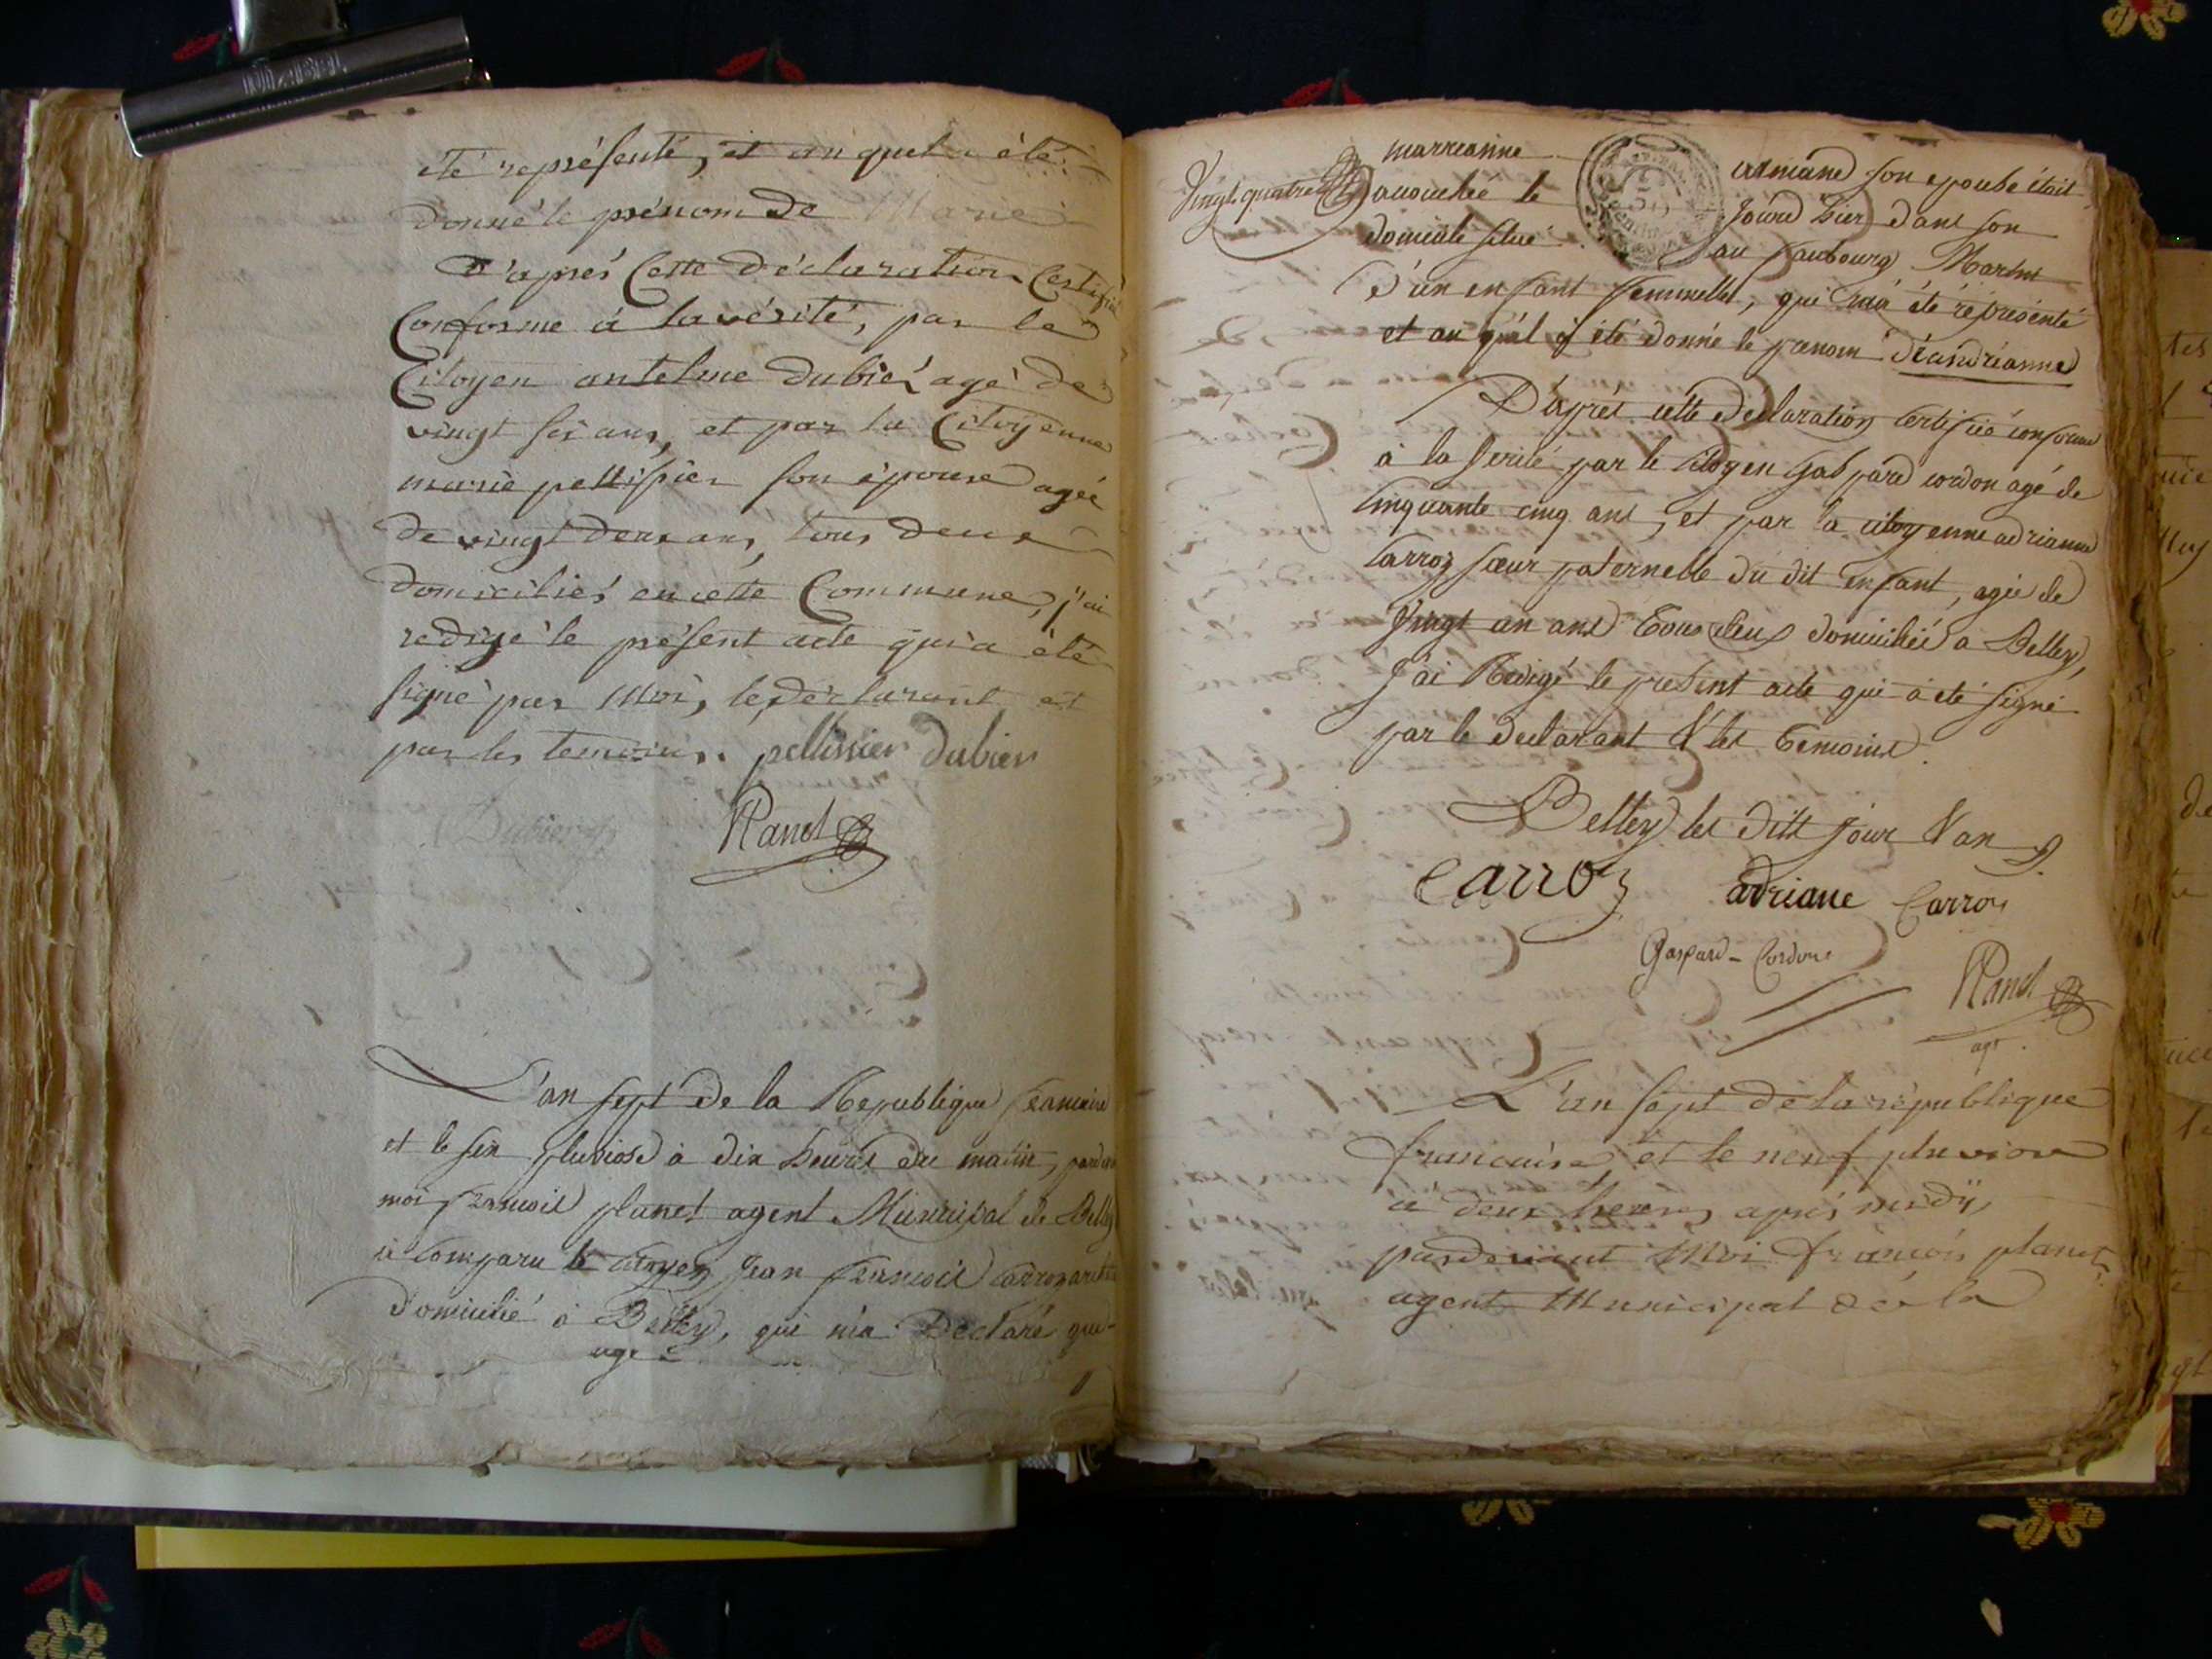 été représenté, et auquel a été
donné le prénom de Marie
D'après Cette déclaration Certifié
Conforme à la vérité, par le
Citoyen antelme dubier agé de
vingt six ans, et par la Citoyenne
marie pellissier son épouse agée
de vingt deux ans, tous deux
domiciliés en cette Commune, j'ai
redigé le présent acte qui a été
signé par Moi, le déclarant et
par les temoins. pellissier dubier
Dubier
Planet
L'an sept de la Republique francaise
et le six pluviose à dix heures du matin, pardevant
moi francois planet agent Municipal de Belley
à comparu le citoyen Jean francois Carroz
domicilié à Belley, qui m'a Declaré que
agé
Vingt quatre
marrianne armand son epouse était
accouchée le jourd hier dans son
domicile situé au faubourg Martin
d'un enfant femmelle, qui m'a été réprésenté
et au quel à été donné le prenom d'éandréanne
D'après cette declaration certifiée conforme
à la verité par le citoyen gaspard cordon agé de
Cinquante cinq ans, et par la citoyenne adrianne
Carroz sœur paternelle du dit enfant, agée de
Vingt un ans tous deux domiciliés a Belley,
J'ai Redigé le present acte qui à été signé
par le declarant & les temoins.
Belley les dits jour & an
Carroz adriane Carroz
Gaspard - Cordon
Planet
agt
L'an sept de la république
francaise, et le neuf pluviose
à deux heures après midy,
pardevant Moi francois planet
agent Municipal de la